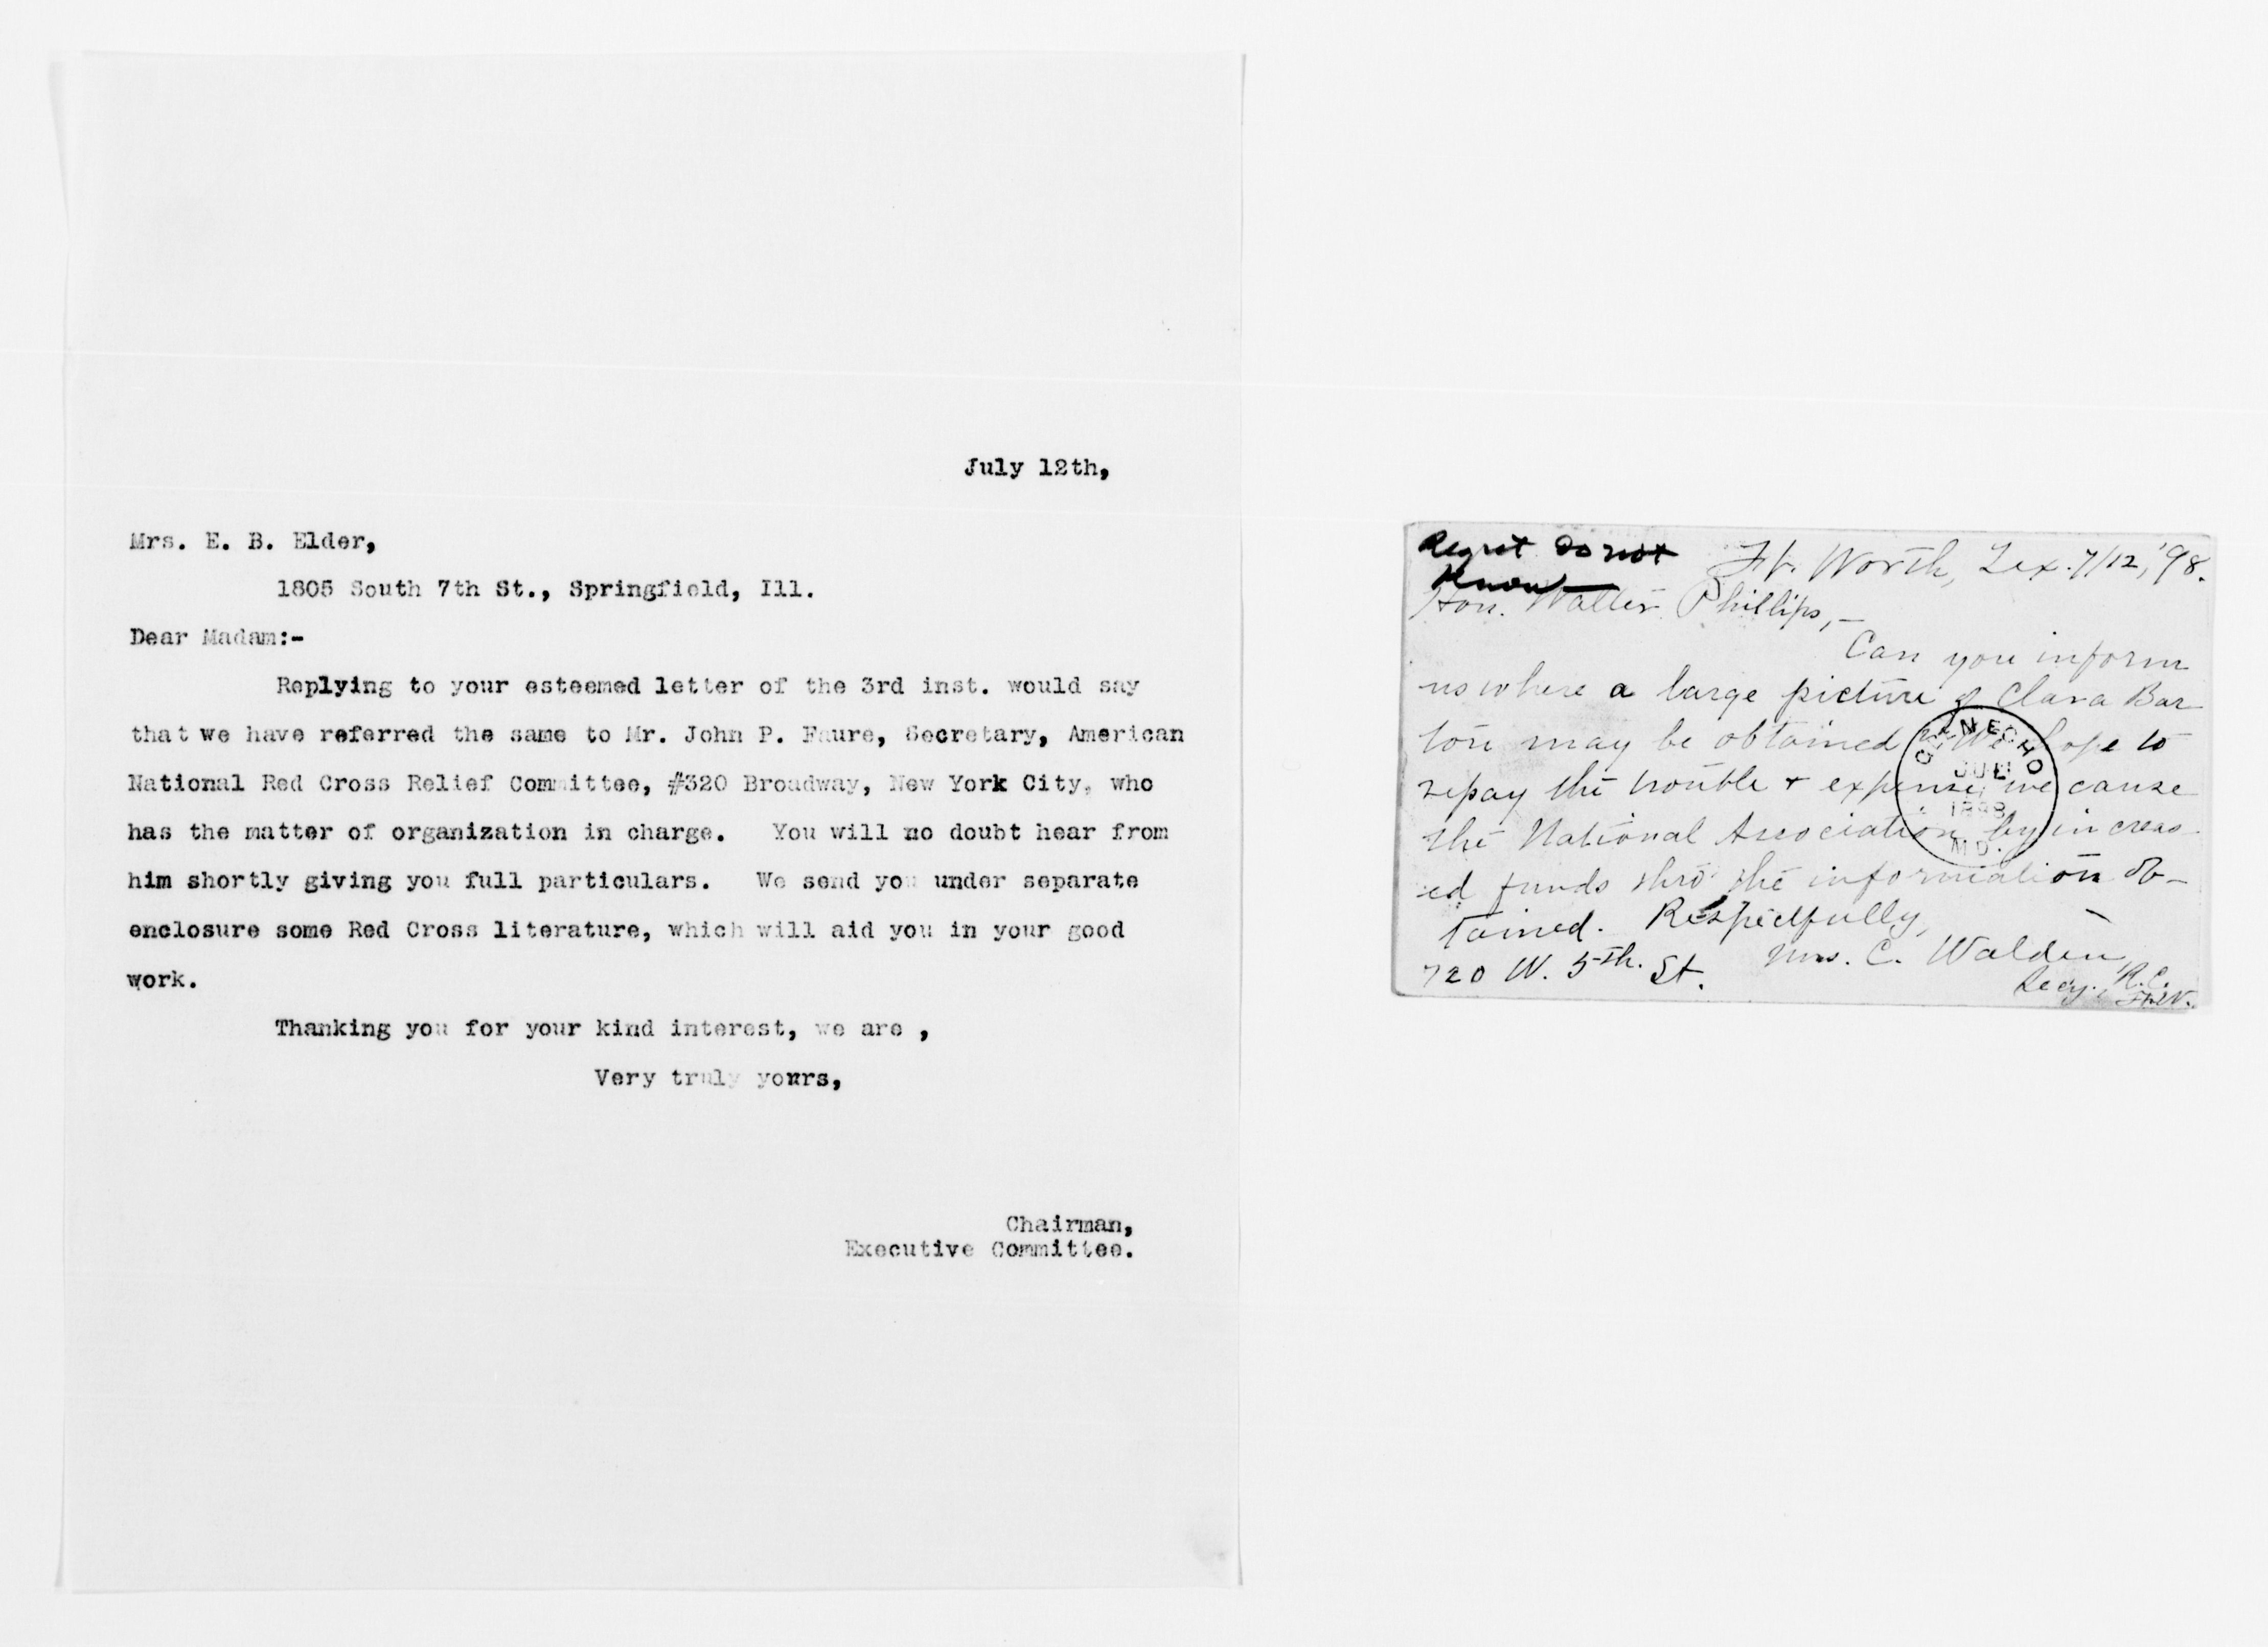 July 12th,
Mrs. E. B. Elder,
1805 South 7th St., Springfield, Ill.
Dear Madam:-
Replying to your esteemed letter of the 3rd inst. would say
that we have referred the same to Mr. John P. Faure, Secretary, American
National Red Cross Relief Committee, #320 Broadway, New York City, who
has the matter of organization in charge. You will no doubt hear from
him shortly giving you full particulars. We send you under separate
enclosure some Red Cross literature, which will aid you in your good
work.
Thanking you for your kind interest, we are ,
Very truly yours,
Chairman,
Executive Committee.
Regret Do not
Know
Ft. Worth, Tex. 7/12, '98.
Hon. Walter Phillips,—
Can you inform
us where a large picture of Clara Bar-
ton may be obtained? We hope to
repay the trouble + expense, we cause
the National Association by increas-
ed funds thro' the information ob-
tained. Respectfully,
Mrs. C. Walden,
720 W. 5th. St.
Secy. R.C.
Ft.W.
GLEN ECHO
JUL
1898
MD.